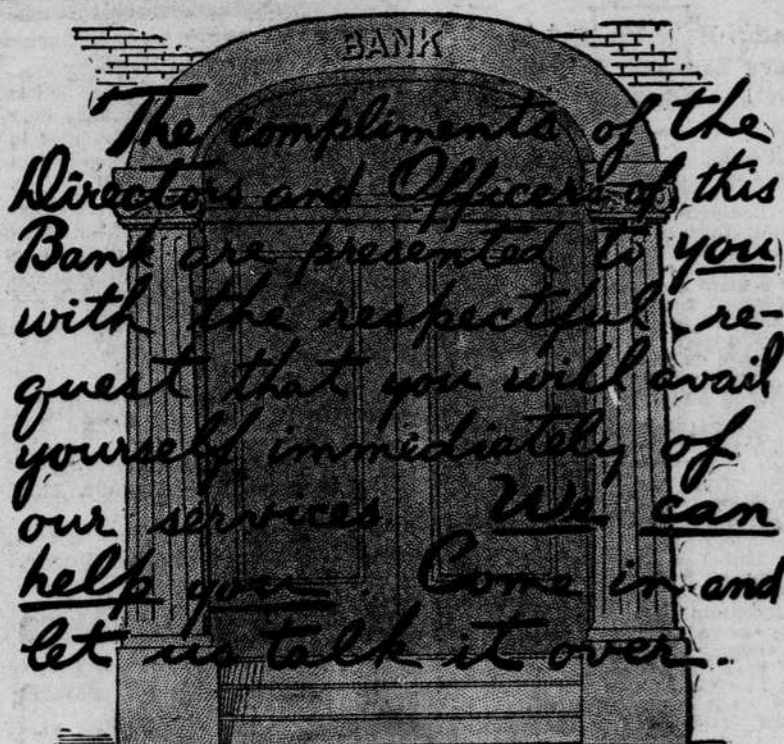 BANK
The compliments of the
Directors and Officers of this
Bank are presented to you
with the respectful re-
quest that you will avail
yourself immediately of
our services. We can
help you. Come in and
let us talk it over.